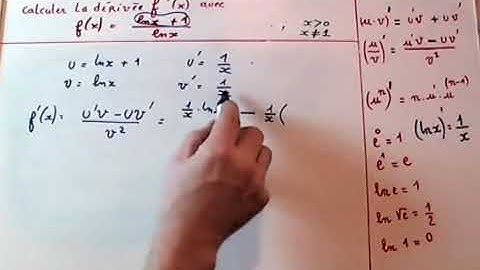 Calculer la dérivée f'(x) avec
f(x) = (ln x + 1)/(ln x) , x>0
x≠1
u = ln x + 1 u' = 1/x
v = ln x v' = 1/x
f'(x) = (u'v - uv')/v² = 1/x · ln - 1/x (
(u·v)' = u'v + uv'
(u/v)' = (u'v - uv')/v²
(uⁿ)' = n·u'·u⁽ⁿ⁻¹⁾
e⁰ = 1 (ln x)' = 1/x
e¹ = e
ln e = 1
ln √e = 1/2
ln 1 = 0